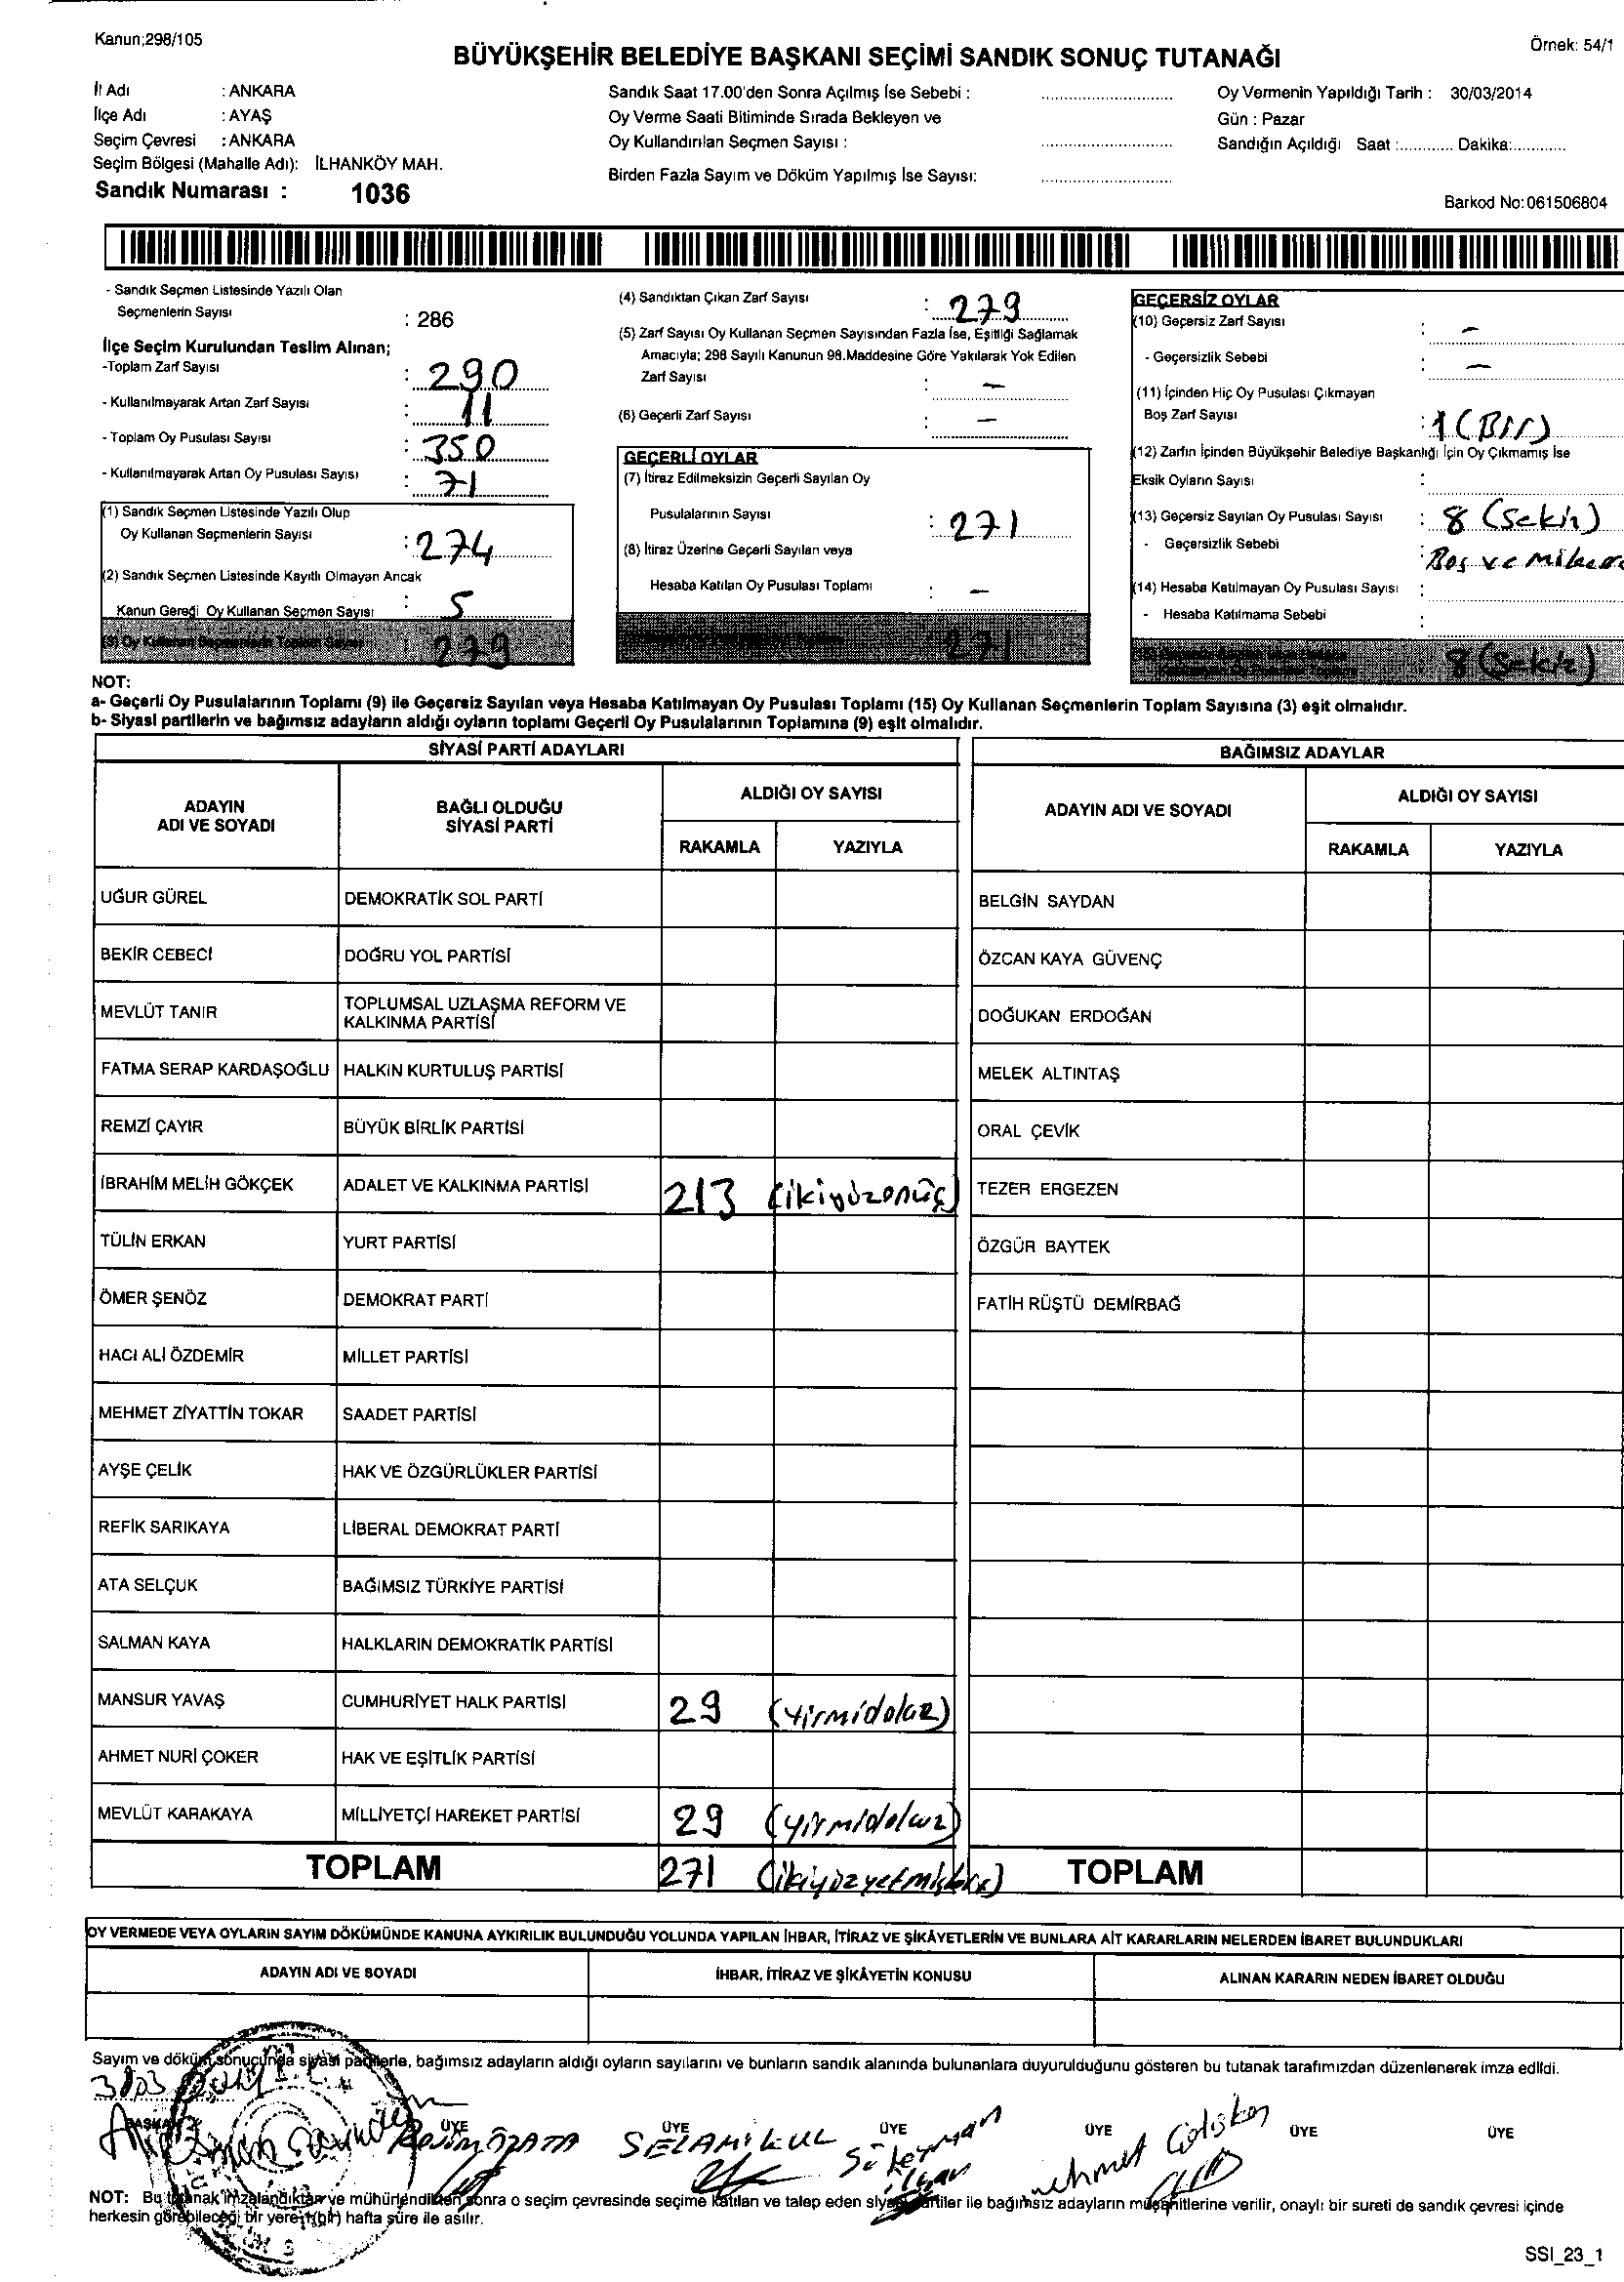 Kanun;298/105
BÜYÜKŞEHİR BELEDİYE BAŞKANI SEÇİMİ SANDIK SONUÇ TUTANAĞI
Örnek: 54/1
İl Adı : ANKARA
İlçe Adı : AYAŞ
Seçim Çevresi : ANKARA
Seçim Bölgesi (Mahalle Adı): İLHANKÖY MAH.
Sandık Numarası : 1036
Sandık Saat 17.00'den Sonra Açılmış İse Sebebi :
Oy Verme Saati Bitiminde Sırada Bekleyen ve
Oy Kullandırılan Seçmen Sayısı :
Birden Fazla Sayım ve Döküm Yapılmış İse Sayısı:
Oy Vermenin Yapıldığı Tarih : 30/03/2014
Gün : Pazar
Sandığın Açıldığı Saat :............ Dakika:............
Barkod No:061506804
- Sandık Seçmen Listesinde Yazılı Olan
Seçmenlerin Sayısı : 286
İlçe Seçim Kurulundan Teslim Alınan;
-Toplam Zarf Sayısı : 290
- Kullanılmayarak Artan Zarf Sayısı : 11
- Toplam Oy Pusulası Sayısı : 350
- Kullanılmayarak Artan Oy Pusulası Sayısı : 71
(1) Sandık Seçmen Listesinde Yazılı Olup
Oy Kullanan Seçmenlerin Sayısı : 274
(2) Sandık Seçmen Listesinde Kayıtlı Olmayan Ancak
Kanun Gereği Oy Kullanan Seçmen Sayısı : 5
(3) Oy Kullanan Seçmenlerin Toplam Sayısı : 279
(4) Sandıktan Çıkan Zarf Sayısı : 279
(5) Zarf Sayısı Oy Kullanan Seçmen Sayısından Fazla İse, Eşitliği Sağlamak
Amacıyla; 298 Sayılı Kanunun 98.Maddesine Göre Yakılarak Yok Edilen
Zarf Sayısı : -
(6) Geçerli Zarf Sayısı : -
GEÇERLİ OYLAR
(7) İtiraz Edilmeksizin Geçerli Sayılan Oy
Pusulalarının Sayısı : 271
(8) İtiraz Üzerine Geçerli Sayılan veya
Hesaba Katılan Oy Pusulası Toplamı : -
: 271
GEÇERSİZ OYLAR
(10) Geçersiz Zarf Sayısı : -
- Geçersizlik Sebebi : -
(11) İçinden Hiç Oy Pusulası Çıkmayan
Boş Zarf Sayısı : 1 (Bir)
(12) Zarfın İçinden Büyükşehir Belediye Başkanlığı İçin Oy Çıkmamış İse
Eksik Oyların Sayısı :
(13) Geçersiz Sayılan Oy Pusulası Sayısı : 8 (Sekiz)
- Geçersizlik Sebebi : Boş ve
(14) Hesaba Katılmayan Oy Pusulası Sayısı :
- Hesaba Katılmama Sebebi :
8 (Sekiz)
NOT:
a- Geçerli Oy Pusulalarının Toplamı (9) ile Geçersiz Sayılan veya Hesaba Katılmayan Oy Pusulası Toplamı (15) Oy Kullanan Seçmenlerin Toplam Sayısına (3) eşit olmalıdır.
b- Siyasi partilerin ve bağımsız adayların aldığı oyların toplamı Geçerli Oy Pusulalarının Toplamına (9) eşit olmalıdır.
SİYASİ PARTİ ADAYLARI
BAĞIMSIZ ADAYLAR
ADAYIN ADI VE SOYADI
BAĞLI OLDUĞU SİYASİ PARTİ
ALDIĞI OY SAYISI
RAKAMLA YAZIYLA
ADAYIN ADI VE SOYADI
ALDIĞI OY SAYISI
RAKAMLA YAZIYLA
UĞUR GÜREL DEMOKRATİK SOL PARTİ BELGİN SAYDAN
BEKİR CEBECİ DOĞRU YOL PARTİSİ ÖZCAN KAYA GÜVENÇ
MEVLÜT TANIR TOPLUMSAL UZLAŞMA REFORM VE KALKINMA PARTİSİ DOĞUKAN ERDOĞAN
FATMA SERAP KARDAŞOĞLU HALKIN KURTULUŞ PARTİSİ MELEK ALTINTAŞ
REMZİ ÇAYIR BÜYÜK BİRLİK PARTİSİ ORAL ÇEVİK
İBRAHİM MELİH GÖKÇEK ADALET VE KALKINMA PARTİSİ 213 (ikiyüzonüç) TEZER ERGEZEN
TÜLİN ERKAN YURT PARTİSİ ÖZGÜR BAYTEK
ÖMER ŞENÖZ DEMOKRAT PARTİ FATİH RÜŞTÜ DEMİRBAĞ
HACI ALİ ÖZDEMİR MİLLET PARTİSİ
MEHMET ZİYATTİN TOKAR SAADET PARTİSİ
AYŞE ÇELİK HAK VE ÖZGÜRLÜKLER PARTİSİ
REFİK SARIKAYA LİBERAL DEMOKRAT PARTİ
ATA SELÇUK BAĞIMSIZ TÜRKİYE PARTİSİ
SALMAN KAYA HALKLARIN DEMOKRATİK PARTİSİ
MANSUR YAVAŞ CUMHURİYET HALK PARTİSİ 29 (yirmidokuz)
AHMET NURİ ÇOKER HAK VE EŞİTLİK PARTİSİ
MEVLÜT KARAKAYA MİLLİYETÇİ HAREKET PARTİSİ 29 (yirmidokuz)
TOPLAM 271 (ikiyüzyetmişbir) TOPLAM
OY VERMEDE VEYA OYLARIN SAYIM DÖKÜMÜNDE KANUNA AYKIRILIK BULUNDUĞU YOLUNDA YAPILAN İHBAR, İTİRAZ VE ŞİKÂYETLERİN VE BUNLARA AİT KARARLARIN NELERDEN İBARET BULUNDUKLARI
ADAYIN ADI VE SOYADI İHBAR, İTİRAZ VE ŞİKÂYETİN KONUSU ALINAN KARARIN NEDEN İBARET OLDUĞU
Sayım ve döküm sonucunda siyasi partilerle, bağımsız adayların aldığı oyların sayılarını ve bunların sandık alanında bulunanlara duyurulduğunu gösteren bu tutanak tarafımızdan düzenlenerek imza edildi.
BAŞKAN ÜYE ÜYE ÜYE ÜYE ÜYE ÜYE
SELAMİ KUL Süleyman Mehmet
NOT: Bu tutanak imzalandıktan ve mühürlendikten sonra o seçim çevresinde seçime katılan ve talep eden siyasi partiler ile bağımsız adayların müşahitlerine verilir, onaylı bir sureti de sandık çevresi içinde
herkesin görebileceği bir yere 1(bir) hafta süre ile asılır.
SSI_23_1